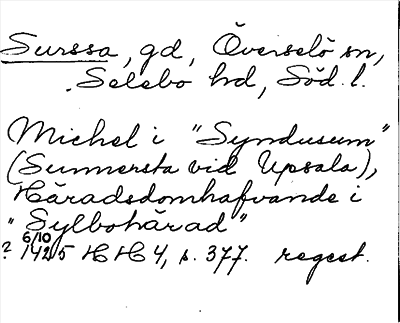 Surssa, gd, Överselö sn,
Selebo hd, Söd. l.
Michel i "Syndusum"
(Sunnersta vid Upsala),
Häradsdomhafvande i
"Sylbohärad"
? 6/10 1425 HH 4, s. 377. regest.